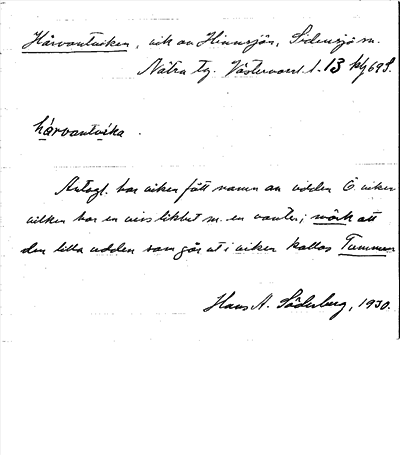 Hårvantviken, vik av Hinnsjön, Sidensjö sn.
Nätra tg. Västernorrl. l. 13
hårvantvika.
Antagl. har viken fått namn av udden Ö viken
vilken har en viss likhet m. en vante; märk att
den lilla udden som går ut i viken kallas Tummen
Hans A. Söderberg, 1930.